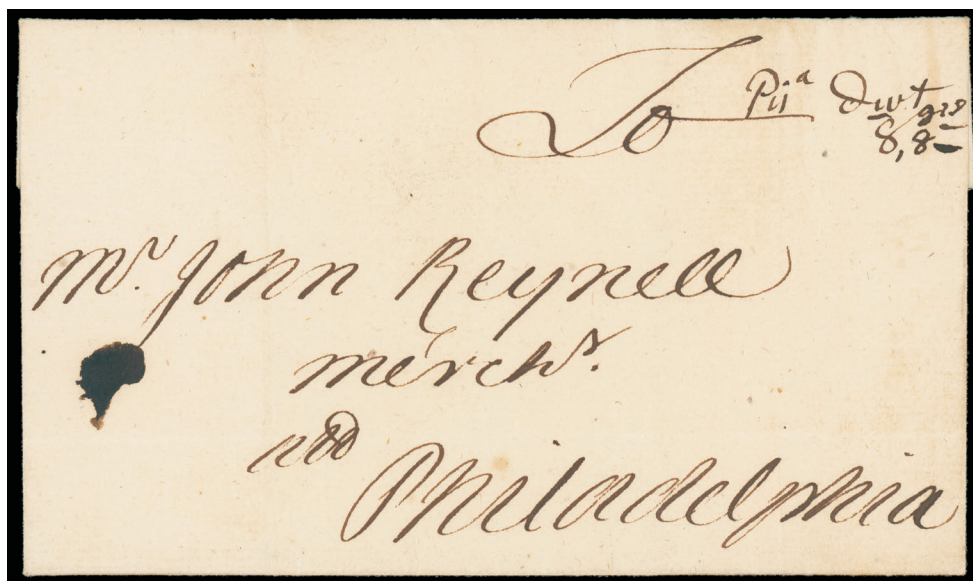 To Piiª Dwt grs
8,8
Mr. John Reynell
merchr.
Philadelphia